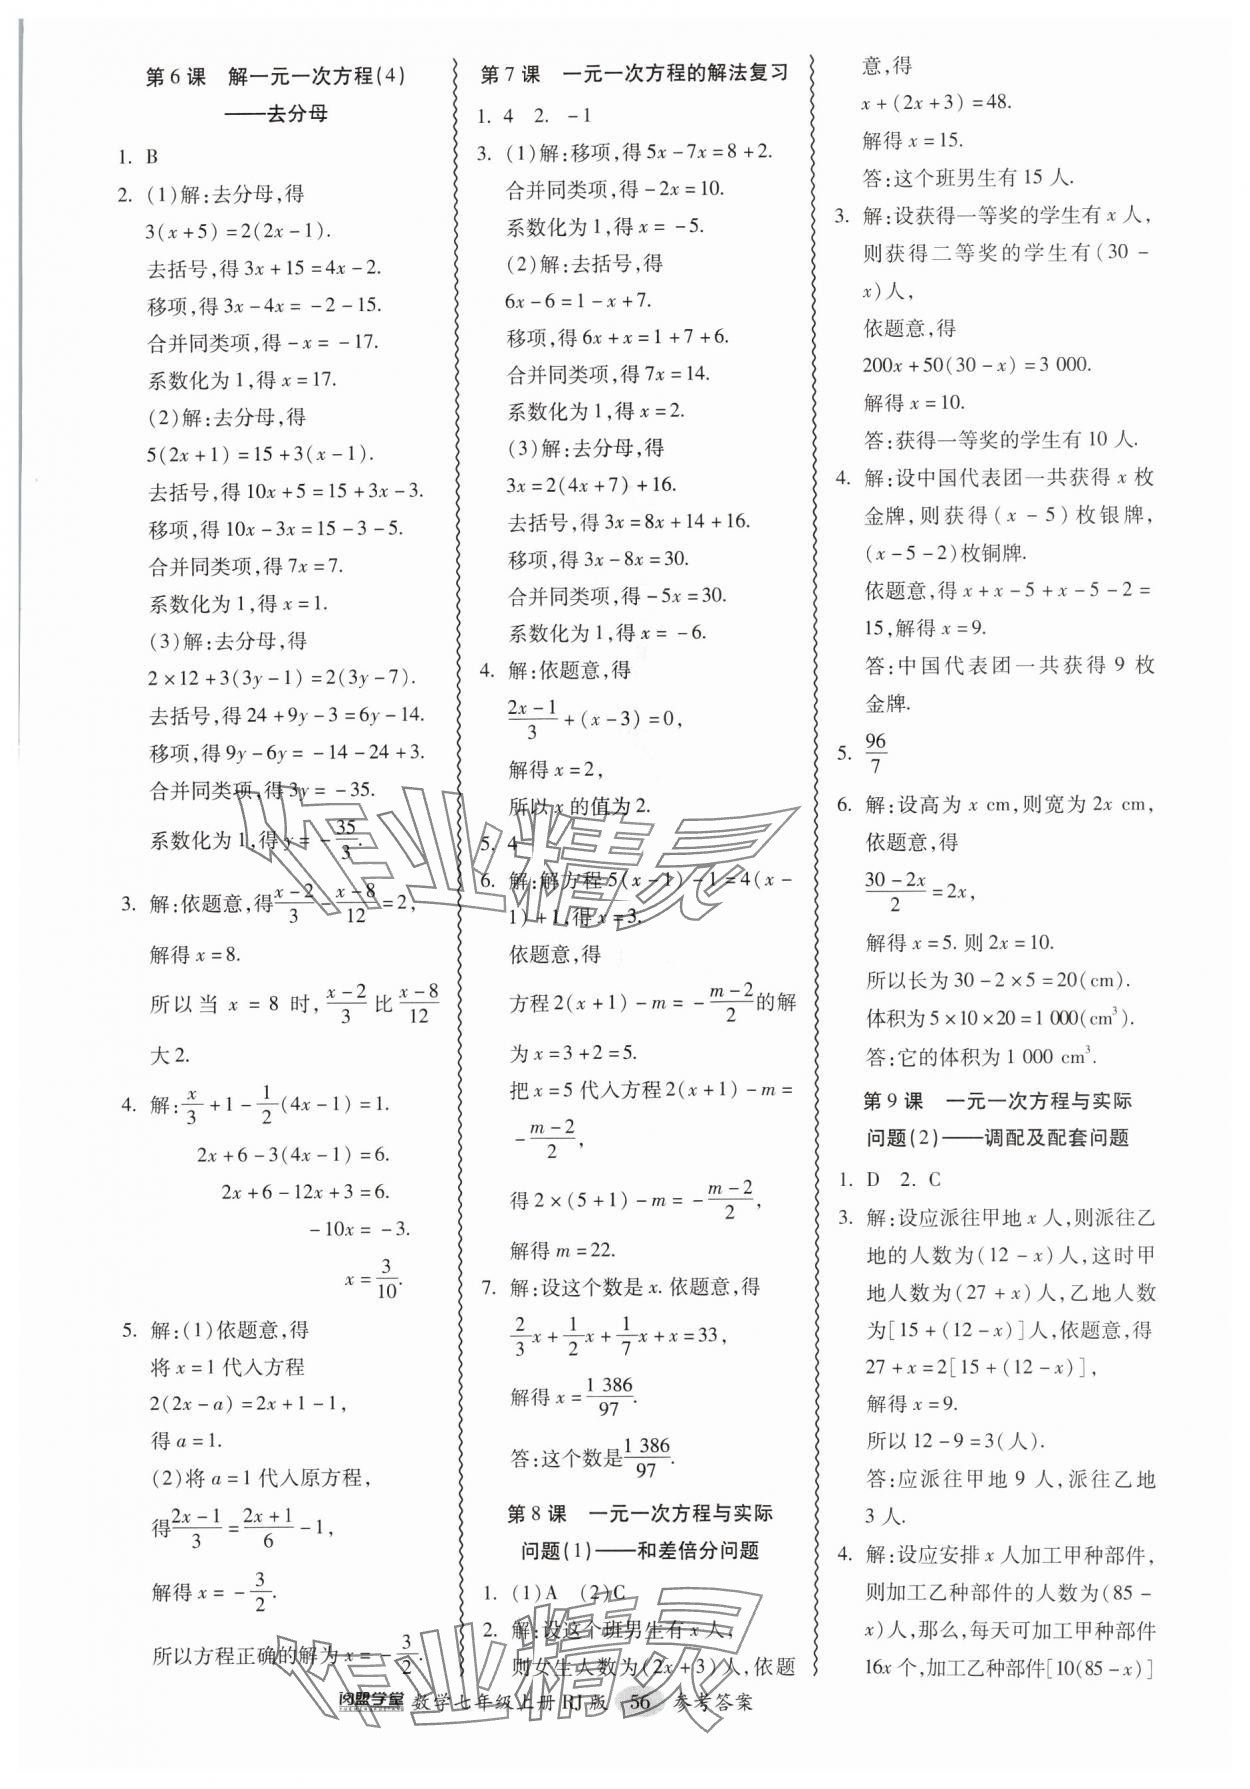 第6课 解一元一次方程(4)
——去分母
1. B
2. (1)解:去分母,得
3(x+5)=2(2x-1).
去括号,得 3x+15=4x-2.
移项,得 3x-4x=-2-15.
合并同类项,得-x=-17.
系数化为1,得 x=17.
(2)解:去分母,得
5(2x+1)=15+3(x-1).
去括号,得 10x+5=15+3x-3.
移项,得 10x-3x=15-3-5.
合并同类项,得 7x=7.
系数化为1,得 x=1.
(3)解:去分母,得
2×12+3(3y-1)=2(3y-7).
去括号,得 24+9y-3=6y-14.
移项,得 9y-6y=-14-24+3.
合并同类项,得 3y=-35.
系数化为1,得 y=-35/3.
3. 解:依题意,得 (x-2)/3-(x-8)/12=2,
解得 x=8.
所以当 x=8 时,(x-2)/3 比 (x-8)/12
大2.
4. 解:x/3+1-1/2(4x-1)=1.
2x+6-3(4x-1)=6.
2x+6-12x+3=6.
-10x=-3.
x=3/10.
5. 解:(1)依题意,得
将 x=1 代入方程
2(2x-a)=2x+1-1,
得 a=1.
(2)将 a=1 代入原方程,
得 (2x-1)/3=(2x+1)/6-1,
解得 x=-3/2.
所以方程正确的解为 x=-3/2.
第7课 一元一次方程的解法复习
1. 4 2. -1
3. (1)解:移项,得 5x-7x=8+2.
合并同类项,得-2x=10.
系数化为1,得 x=-5.
(2)解:去括号,得
6x-6=1-x+7.
移项,得 6x+x=1+7+6.
合并同类项,得 7x=14.
系数化为1,得 x=2.
(3)解:去分母,得
3x=2(4x+7)+16.
去括号,得 3x=8x+14+16.
移项,得 3x-8x=30.
合并同类项,得-5x=30.
系数化为1,得 x=-6.
4. 解:依题意,得
(2x-1)/3+(x-3)=0,
解得 x=2,
所以 x 的值为2.
5. 4
6. 解:解方程 5(x-1)-1=4(x-
1)+1,得 x=3.
依题意,得
方程 2(x+1)-m=-(m-2)/2 的解
为 x=3+2=5.
把 x=5 代入方程 2(x+1)-m=
-(m-2)/2,
得 2×(5+1)-m=-(m-2)/2,
解得 m=22.
7. 解:设这个数是 x. 依题意,得
2/3x+1/2x+1/7x+x=33,
解得 x=1 386/97.
答:这个数是 1 386/97.
第8课 一元一次方程与实际
问题(1)——和差倍分问题
1. (1)A (2)C
2. 解:设这个班男生有 x 人,
则女生人数为(2x+3)人,依题
意,得
x+(2x+3)=48.
解得 x=15.
答:这个班男生有15人.
3. 解:设获得一等奖的学生有 x 人,
则获得二等奖的学生有(30-
x)人,
依题意,得
200x+50(30-x)=3 000.
解得 x=10.
答:获得一等奖的学生有10人.
4. 解:设中国代表团一共获得 x 枚
金牌,则获得(x-5)枚银牌,
(x-5-2)枚铜牌.
依题意,得 x+x-5+x-5-2=
15,解得 x=9.
答:中国代表团一共获得9枚
金牌.
5. 96/7
6. 解:设高为 x cm,则宽为 2x cm,
依题意,得
(30-2x)/2=2x,
解得 x=5. 则 2x=10.
所以长为 30-2×5=20(cm).
体积为 5×10×20=1 000(cm³).
答:它的体积为 1 000 cm³.
第9课 一元一次方程与实际
问题(2)——调配及配套问题
1. D 2. C
3. 解:设应派往甲地 x 人,则派往乙
地的人数为(12-x)人,这时甲
地人数为(27+x)人,乙地人数
为[15+(12-x)]人,依题意,得
27+x=2[15+(12-x)],
解得 x=9.
所以 12-9=3(人).
答:应派往甲地9人,派往乙地
3人.
4. 解:设应安排 x 人加工甲种部件,
则加工乙种部件的人数为(85-
x)人,那么,每天可加工甲种部件
16x 个,加工乙种部件[10(85-x)]
作业精灵
作业精灵
阅盟学堂 数学七年级上册 RJ版 56 参考答案